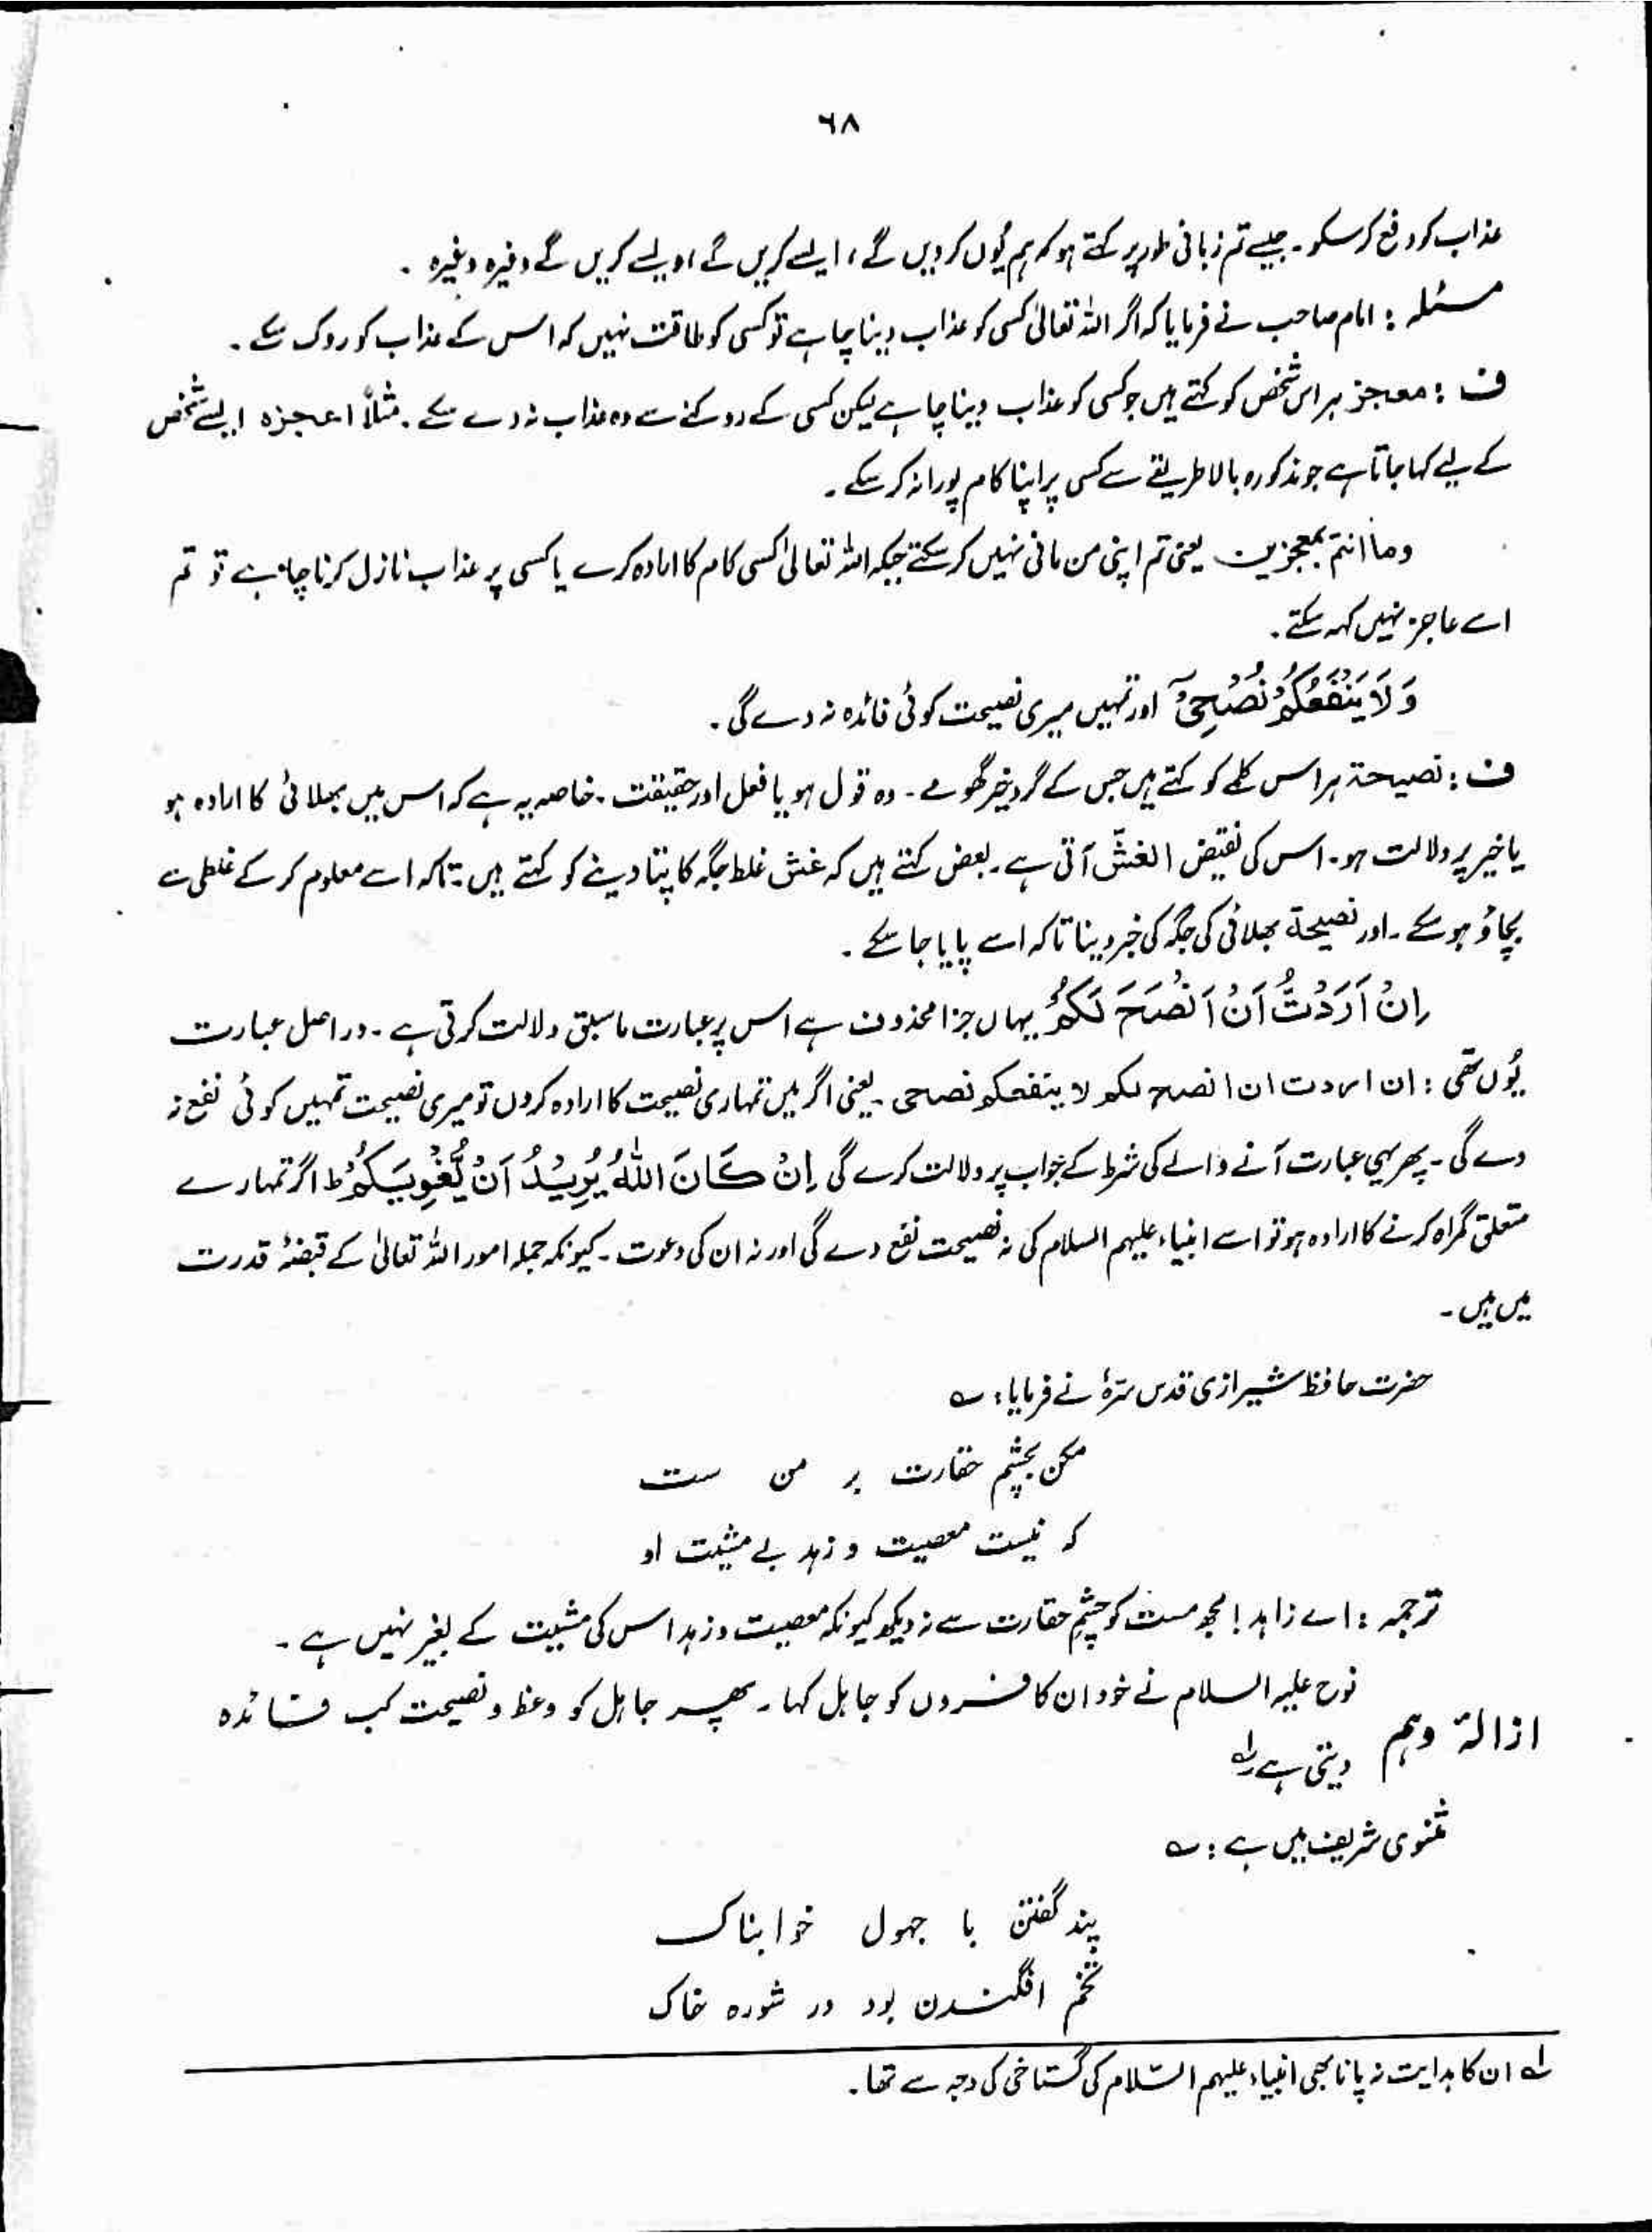 ٦٨
عذاب کو دفع کر سکو۔ جیسے تم زبانی طور پر کہتے ہو کہ ہم یُوں کر دیں گے، ایسے کریں گے، ویسے کریں گے وغیرہ وغیرہ ۔
مسئلہ : امام صاحب نے فرمایا کہ اگر اللہ تعالیٰ کسی کو عذاب دینا چاہے تو کسی کو طاقت نہیں کہ اس کے عذاب کو روک سکے ۔
ف : معجز ہر اس شخص کو کہتے ہیں جو کسی کو عذاب دینا چاہے لیکن کسی کے روکنے سے وہ عذاب نہ دے سکے ۔ مثلاً اعجزہ ایسے شخص
کے لیے کہا جاتا ہے جو مذکورہ بالا طریقے سے کسی پر اپنا کام پورا نہ کر سکے ۔
وما انتم بمعجزین یعنی تم اپنی من مانی نہیں کر سکتے جبکہ اللہ تعالیٰ کسی کام کا ارادہ کرے یا کسی پر عذاب نازل کرنا چاہے تو تم
اسے عاجز نہیں کہہ سکتے ۔
وَلَا يَنْفَعُكُمْ نُصْحِىْٓ اور تمہیں میری نصیحت کوئی فائدہ نہ دے گی ۔
ف : نصیحۃ ہر اس کلمے کو کہتے ہیں جس کے گرد خیر گھومے ۔ وہ قول ہو یا فعل اور حقیقت ۔ خاصہ یہ ہے کہ اس میں بھلائی کا ارادہ ہو
یا خیر پر دلالت ہو ۔ اس کی نقیض الغشّ آتی ہے ۔ بعض کہتے ہیں کہ غش غلط جگہ کا پتا دینے کو کہتے ہیں ۔ تاکہ اسے معلوم کر کے غلطی سے
بچاؤ ہو سکے ۔ اور نصیحۃ بھلائی کی جگہ کی خبر دینا تاکہ اسے پایا جا سکے ۔
اِنْ اَرَدْتُّ اَنْ اَنْصَحَ لَكُمْ یہاں جزا محذوف ہے اس پر عبارت ما سبق دلالت کرتی ہے ۔ دراصل عبارت
یُوں تھی : ان اردت ان انصح لکم لا ینفعکم نصحی ۔ یعنی اگر میں تمہاری نصیحت کا ارادہ کروں تو میری نصیحت تمہیں کوئی نفع نہ
دے گی ۔ پھر یہی عبارت آنے والے کی شرط کے جواب پر دلالت کرے گی اِنْ كَانَ اللّٰهُ يُرِيْدُ اَنْ يُّغْوِيَكُمْ ؕ اگر تمہارے
متعلق گمراہ کرنے کا ارادہ ہو تو اسے انبیاء علیہم السلام کی نہ نصیحت نفع دے گی اور نہ ان کی دعوت ۔ کیونکہ جملہ امور اللہ تعالیٰ کے قبضۂ قدرت
میں ہیں ۔
حضرت حافظ شیرازی قدس سرّہٗ نے فرمایا : ؎
مکن بچشم حقارت بر من ست
کہ نیست معصیت و زہد بے مشیت او
ترجمہ : اے زاہد ! مجھ مست کو چشمِ حقارت سے نہ دیکھ کیونکہ معصیت و زہد اس کی مشیت کے بغیر نہیں ہے ۔
ازالۂ وہم نوح علیہ السلام نے خود ان کافروں کو جاہل کہا ۔ پھر جاہل کو وعظ و نصیحت کب فائدہ
دیتی ہے لے
مثنوی شریف میں ہے : ؎
پند گفتن با جہول خوابناک
تخم افگندن بود در شورہ خاک
لے ان کا ہدایت نہ پانا بھی انبیاء علیہم السّلام کی گستاخی کی وجہ سے تھا ۔